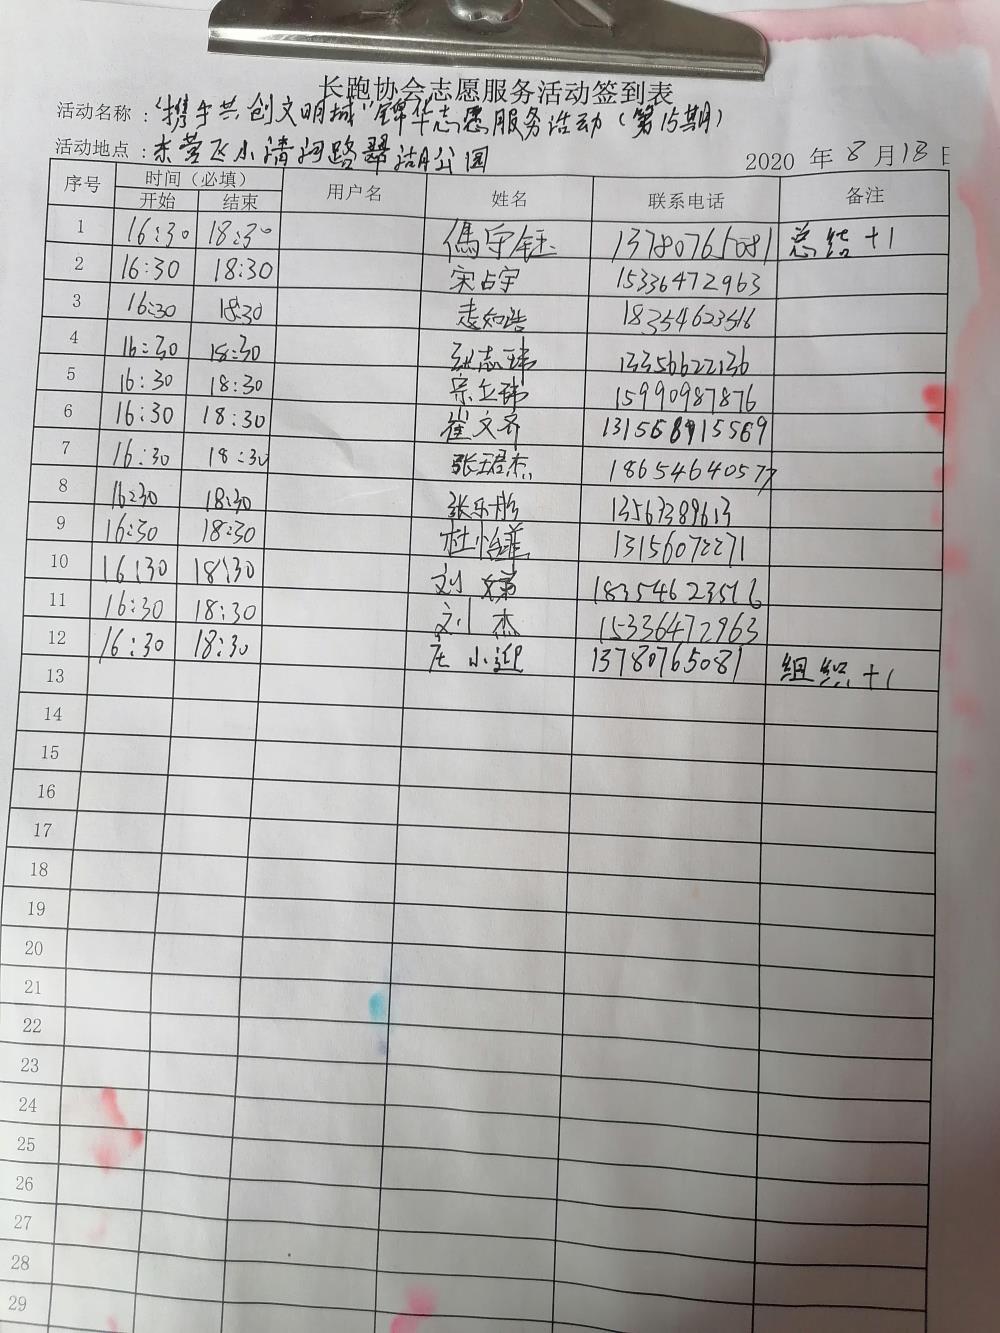 长跑协会志愿服务活动签到表
活动名称：“携手共创文明城”锦华志愿服务活动（第15期）
活动地点：东营区小清河路翠湖公园
2020 年 8 月 18 日
序号 时间（必填） 用户名 姓名 联系电话 备注
开始 结束
1 16:30 18:30 守钰 13780765081 总结+1
2 16:30 18:30 宋占宇 15336472963
3 16:30 18:30 18354623516
4 16:30 18:30 张志玮 13356622136
5 16:30 18:30 15990987876
6 16:30 18:30 崔文齐 131568915569
7 16:30 18:30 张珺杰 18654640577
8 16:30 18:30 张乐彤 13563389613
9 16:30 18:30 杜怡 13156072271
10 16:30 18:30 刘 18354623516
11 16:30 18:30 刘杰 15336472963
12 16:30 18:30 庄小迎 13780765081 组织+1
13
14
15
16
17
18
19
20
21
22
23
24
25
26
27
28
29